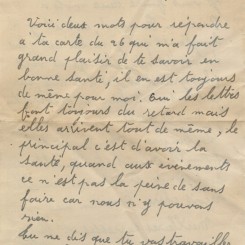 Voici deux mots pour répondre
a ta carte du 26 qui m'a fait
grand plaisir de te savoir en
bonne santé, il en est toujours
de même pour moi. Oui les lettres
font toujours du retard mais
elles arrivent tout de même, le
principal c'est d'avoir la
santé, quand aux événements
ce n'est pas la peine de sans
faire car nous n'y pouvons
rien.
tu me dis que tu vas travailler